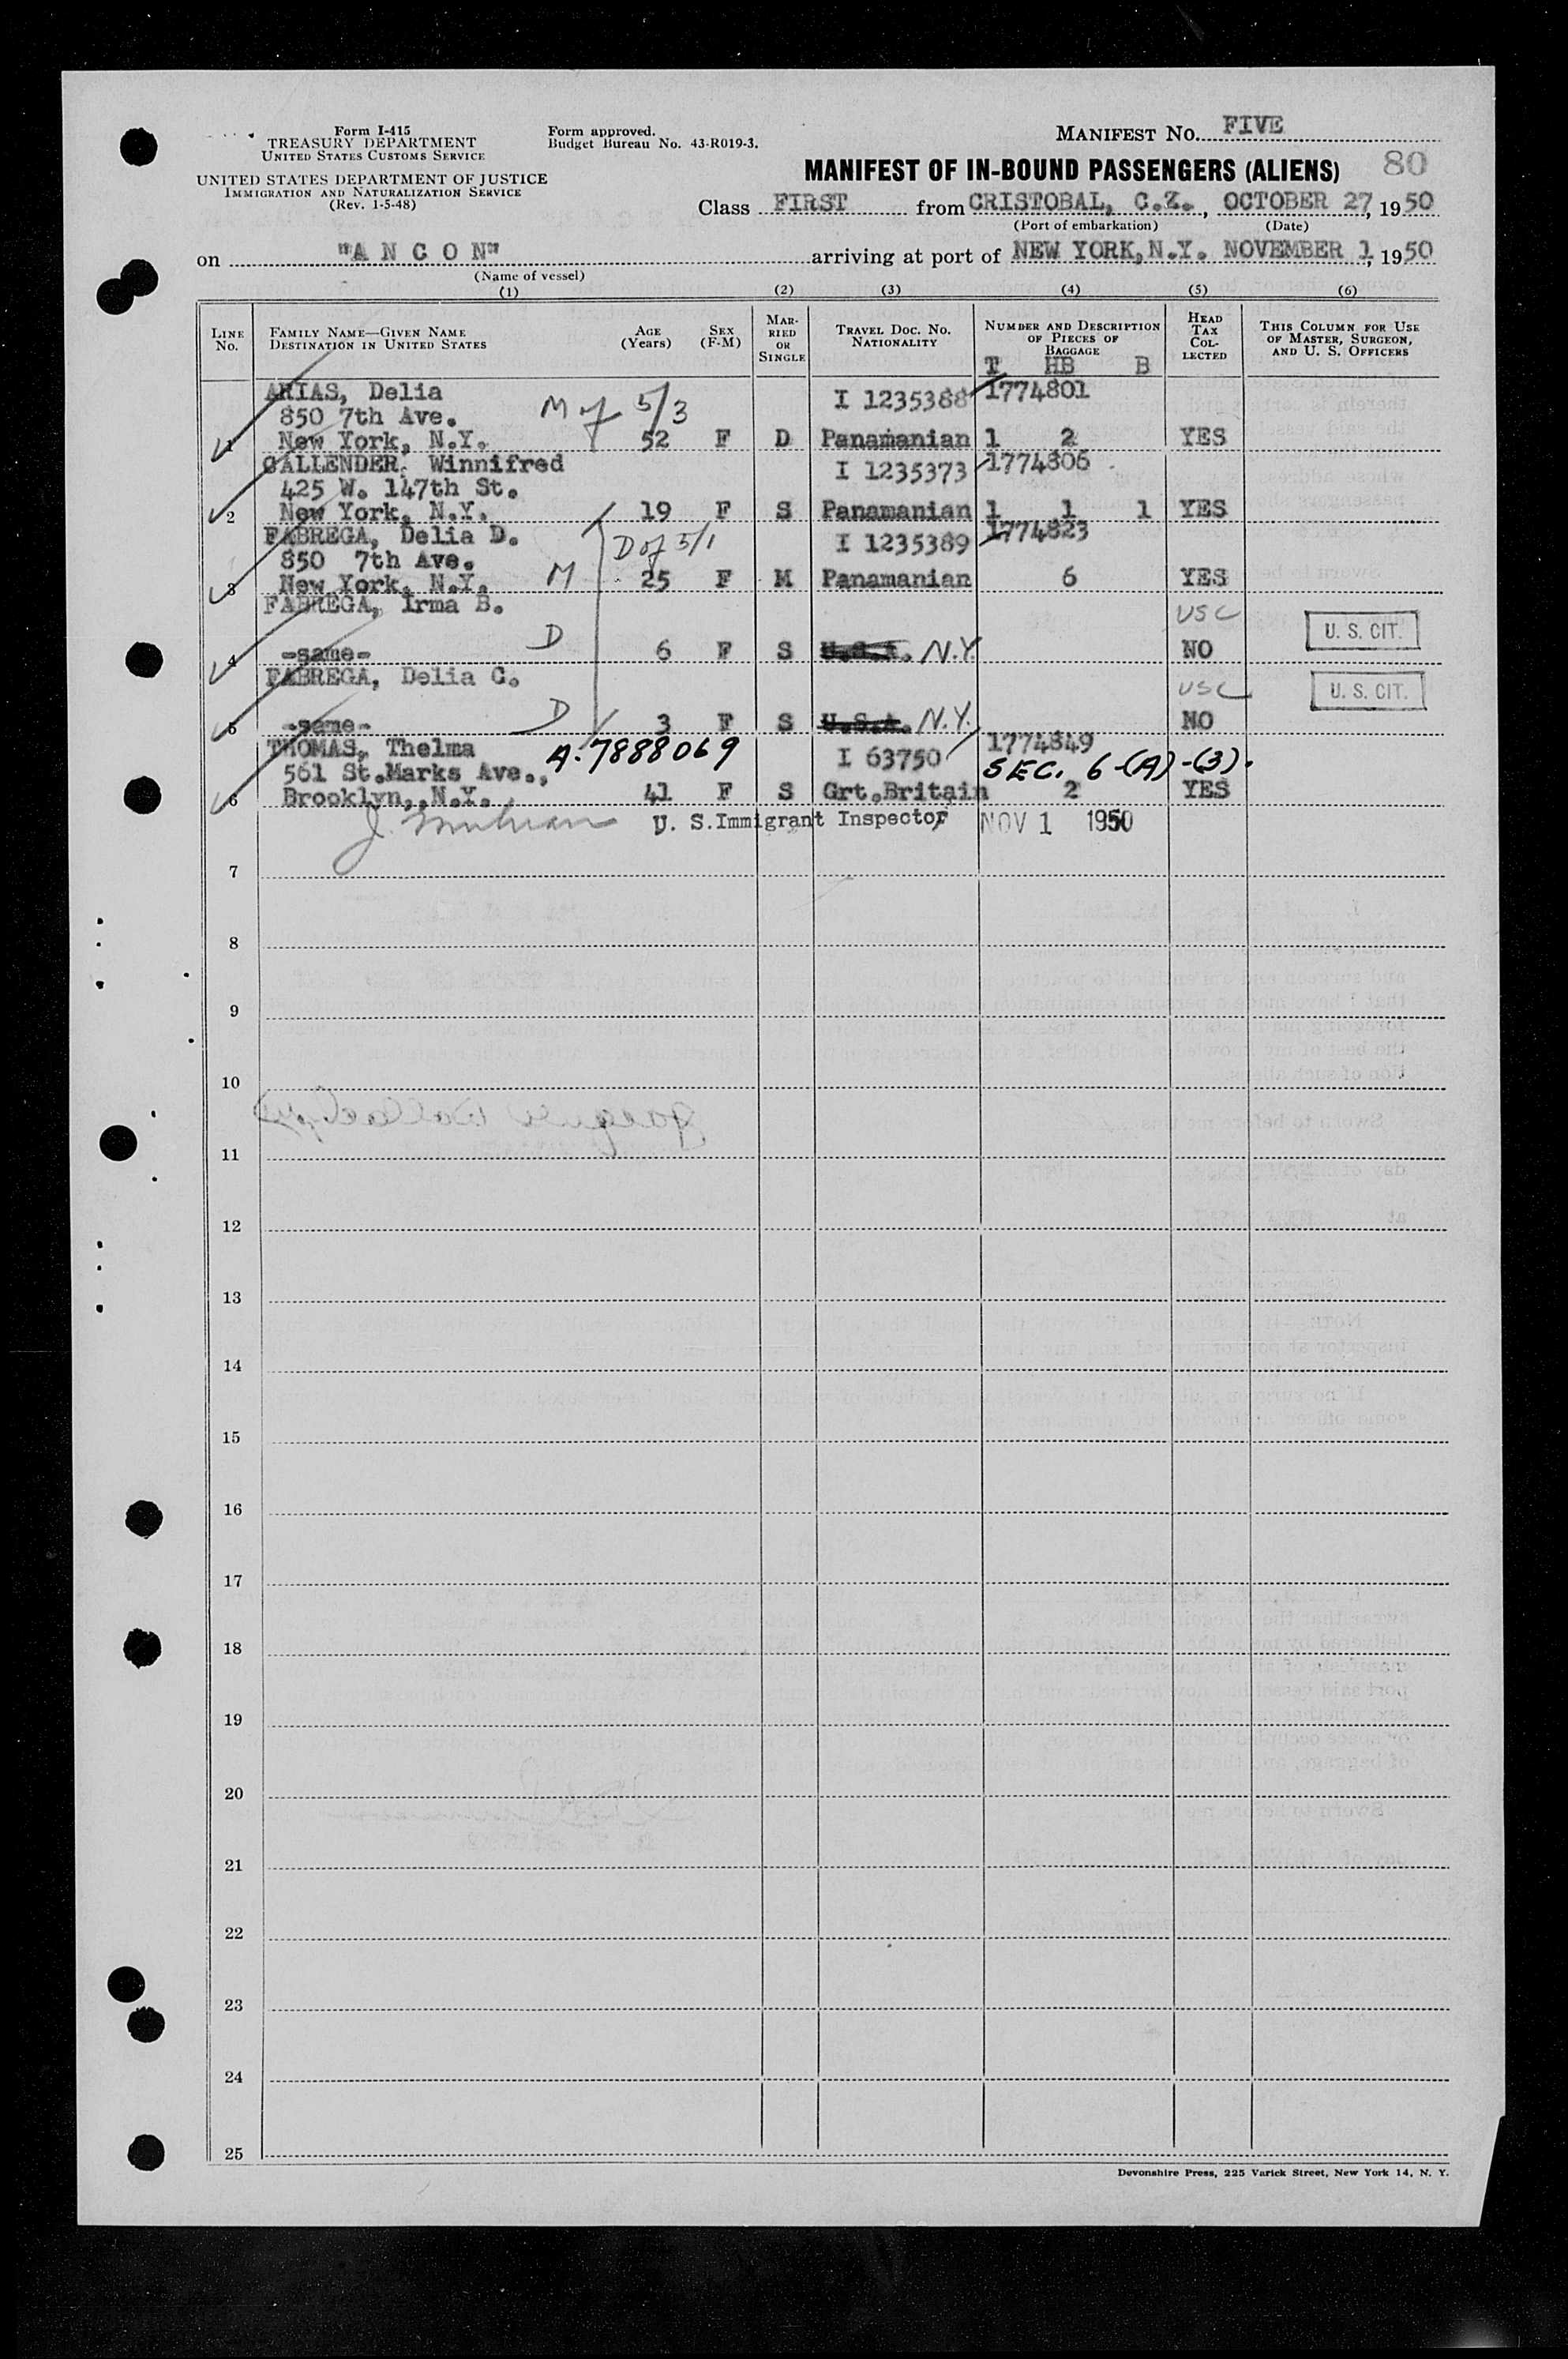 Form I-415
TREASURY DEPARTMENT
UNITED STATES CUSTOMS SERVICE
UNITED STATES DEPARTMENT OF JUSTICE
IMMIGRATION AND NATURALIZATION SERVICE
(Rev. 1-5-48)
Form approved.
Budget Bureau No. 43-R019-3.
MANIFEST NO. FIVE
MANIFEST OF IN-BOUND PASSENGERS (ALIENS) 80
Class FIRST from CRISTOBAL, C.Z., OCTOBER 27, 1950
(Port of embarkation) (Date)
on "A N C O N" arriving at port of NEW YORK, N.Y. NOVEMBER 1, 1950
(Name of vessel)
(1) (2) (3) (4) (5) (6)
LINE NO.
FAMILY NAME—GIVEN NAME
DESTINATION IN UNITED STATES
AGE (Years)
SEX (F-M)
MARRIED OR SINGLE
TRAVEL DOC. NO. NATIONALITY
NUMBER AND DESCRIPTION OF PIECES OF BAGGAGE
T HB B
HEAD TAX COLLECTED
THIS COLUMN FOR USE OF MASTER, SURGEON, AND U. S. OFFICERS
ARIAS, Delia I 1235388 1774801
850 7th Ave. M of 5/3
1 New York, N.Y. 52 F D Panamanian 1 2 YES
CALLENDER, Winnifred I 1235373 1774806
425 W. 147th St.
2 New York, N.Y. 19 F S Panamanian 1 1 1 YES
FABREGA, Delia D. D of 5/1 I 1235389 1774823
850 7th Ave.
3 New York, N.Y. M 25 F M Panamanian 6 YES
FABREGA, Irma B. USC U. S. CIT.
4 -same- D 6 F S U.S.A. N.Y. NO
FABREGA, Delia C. USC U. S. CIT.
5 -same- D 3 F S U.S.A. N.Y. NO
THOMAS, Thelma A-7888069 I 63750 1774849
561 St.Marks Ave., SEC. 6-(A)-(3).
6 Brooklyn, N.Y. 41 F S Grt.Britain 2 YES
U. S. Immigrant Inspector NOV 1 1950
7
8
9
10
11
12
13
14
15
16
17
18
19
20
21
22
23
24
25
Devonshire Press, 225 Varick Street, New York 14, N. Y.